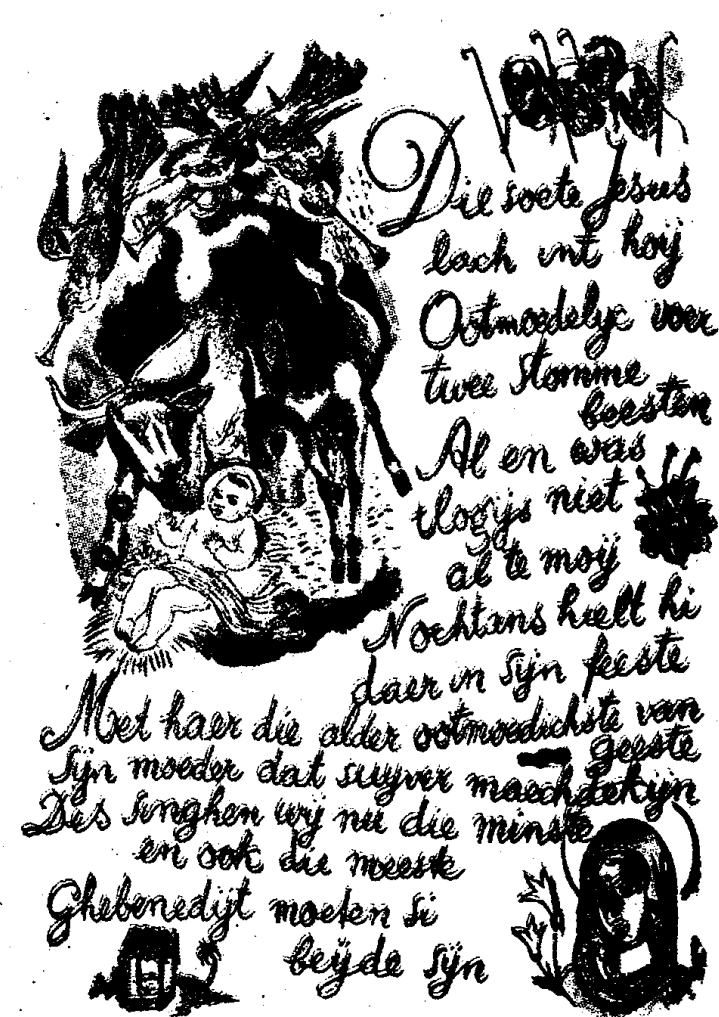 Die soete Jesus
lach int hoÿ
Ootmoedelyc voer
twee stomme
beesten
Al en was
niet
al te moÿ
Nochtans hielt hi
daer in sÿn feeste
Met haer die alder ootmoedichste van
geeste
Sÿn moeder dat suyver maechdekÿn
Des singhen wÿ nu die minste
en ook die meeste
Ghebenedÿt moeten si
beÿde sÿn